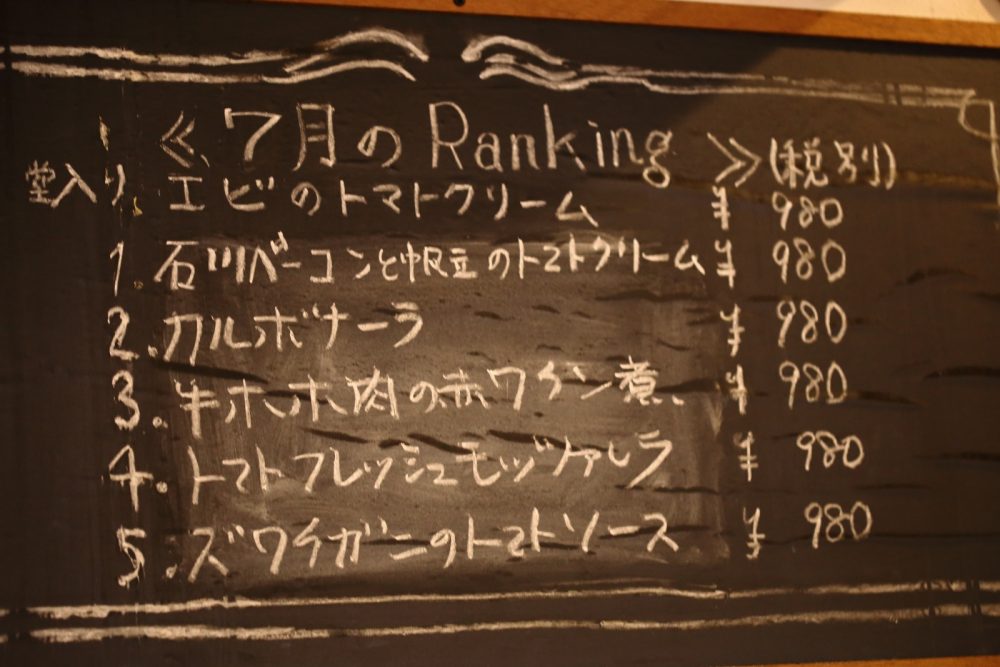 ≪ 7月のRanking ≫(税別)
堂入り エビのトマトクリーム ¥ 980
1. 石川ベーコンと帆立のトマトクリーム ¥ 980
2. カルボナーラ ¥ 980
3. 牛ホホ肉の赤ワイン煮 ¥ 980
4. トマトフレッシュモッツァレラ ¥ 980
5. ズワイガニのトマトソース ¥ 980